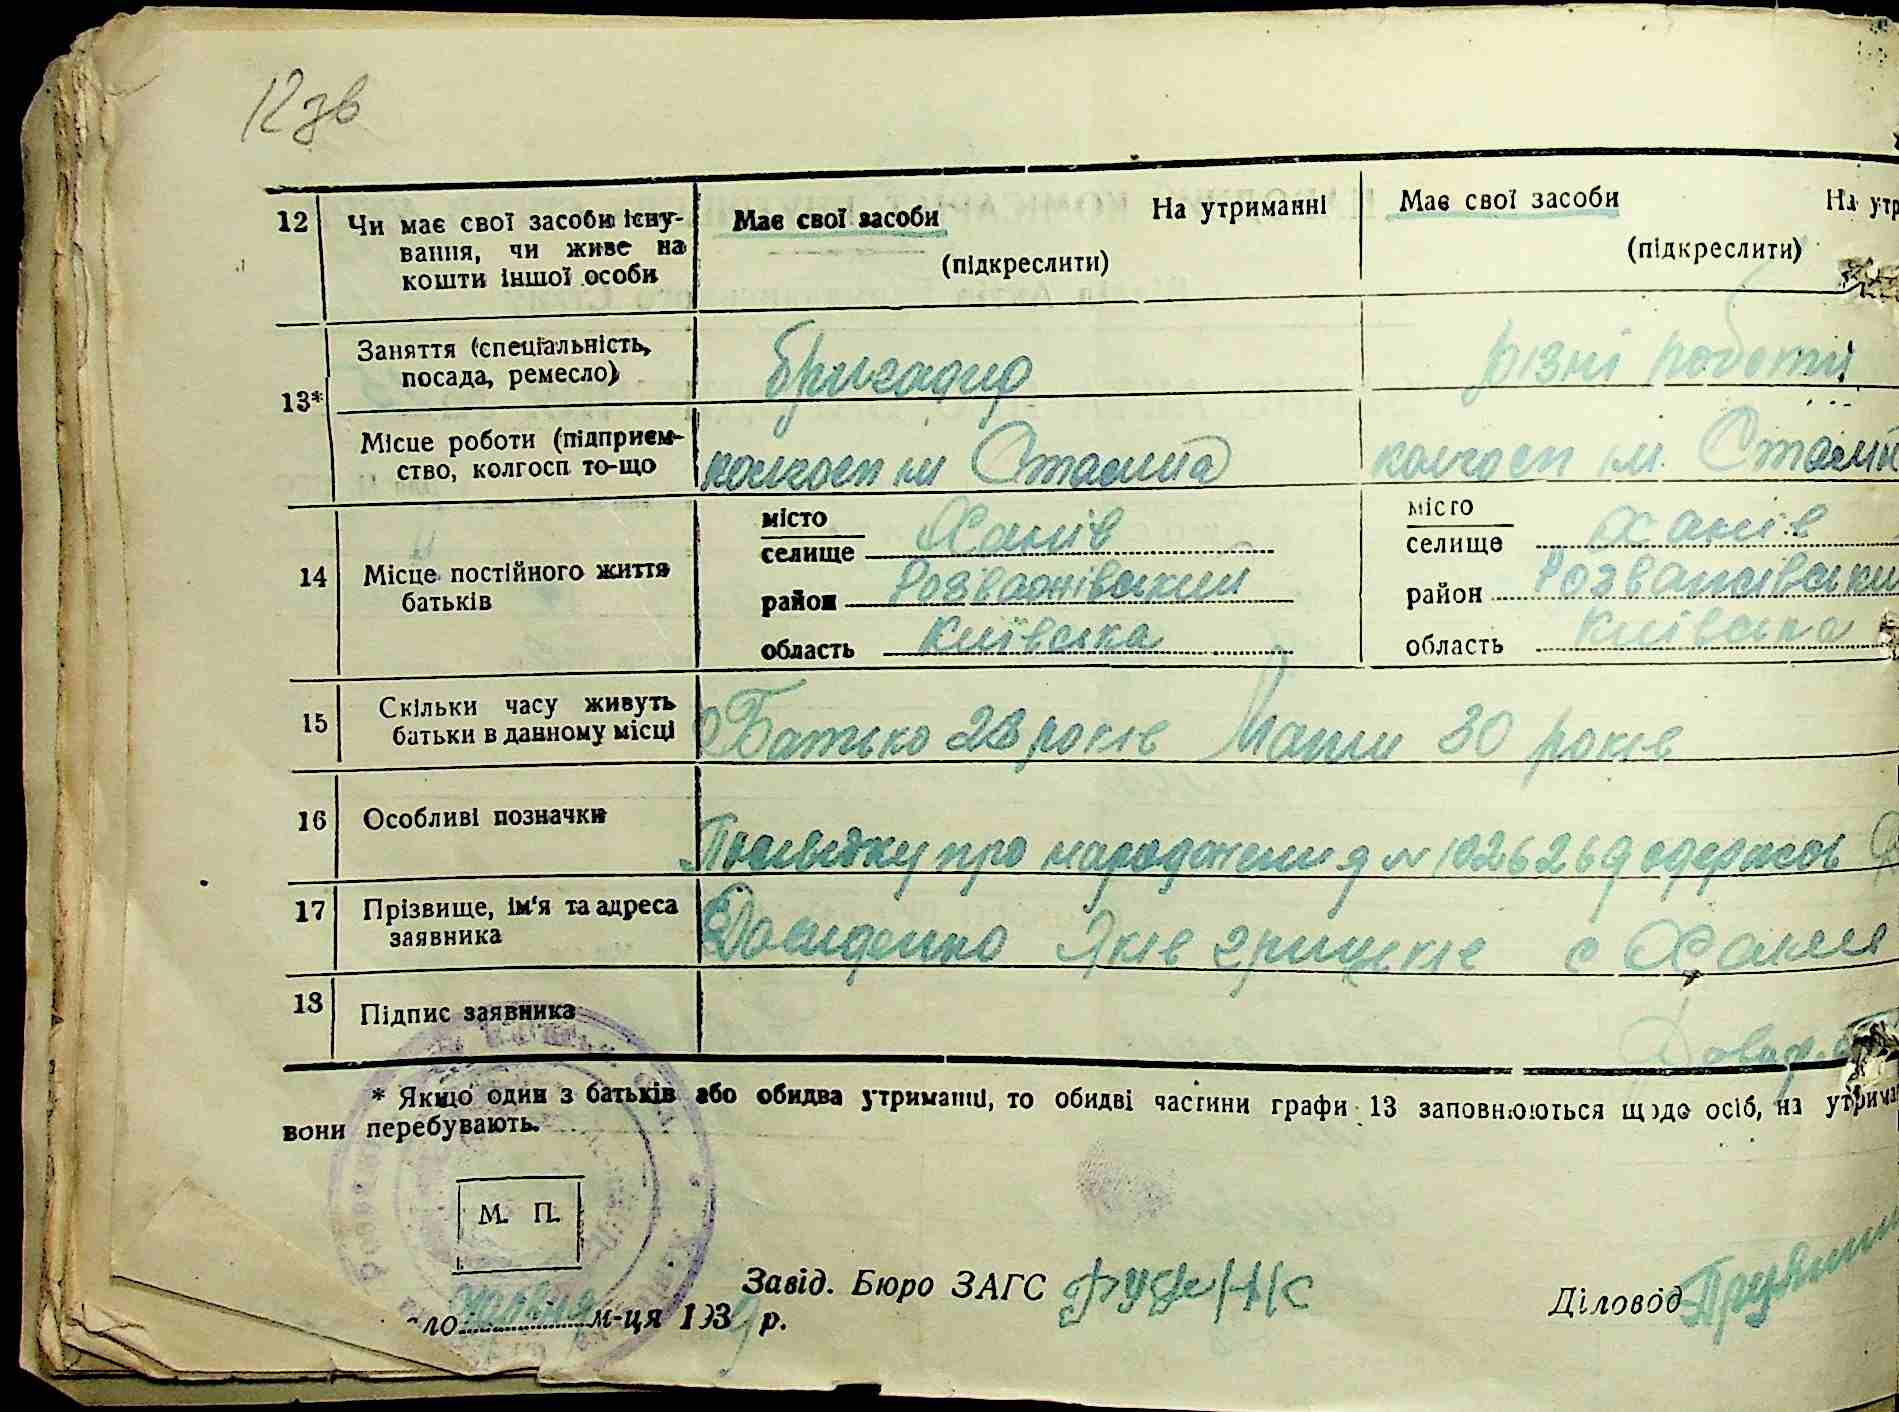 12зв
12 Чи має свої засоби існу-
вання, чи живе на
кошти іншої особи
Має свої засоби На утриманні
(підкреслити)
Має свої засоби На утр
(підкреслити)
13* Заняття (спеціальність,
посада, ремесло)
бригадир
різні роботи
Місце роботи (підприєм-
ство, колгосп то-що
колгосп ім Сталіна
колгосп ім. Сталін
14 Місце постійного життя
батьків
місто
селище Ханів
район Розважівський
область Київська
місто
селище Ханів
район Розважівськи
область Київська
15 Скільки часу живуть
батьки в данному місці
Батько 28 років Мати 30 років
16 Особливі позначки
Посвідку про народження № 1026269 одержав
17 Прізвище, ім'я та адреса
заявника
Яків с Ханів
18 Підпис заявника
* Якщо один з батьків або обидва утриманці, то обидві частини графи 13 заповнюються щодо осіб, на утриман
вони перебувають.
М. П.
Завід. Бюро ЗАГС
Діловод
ло жовтня м-ця 1939 р.